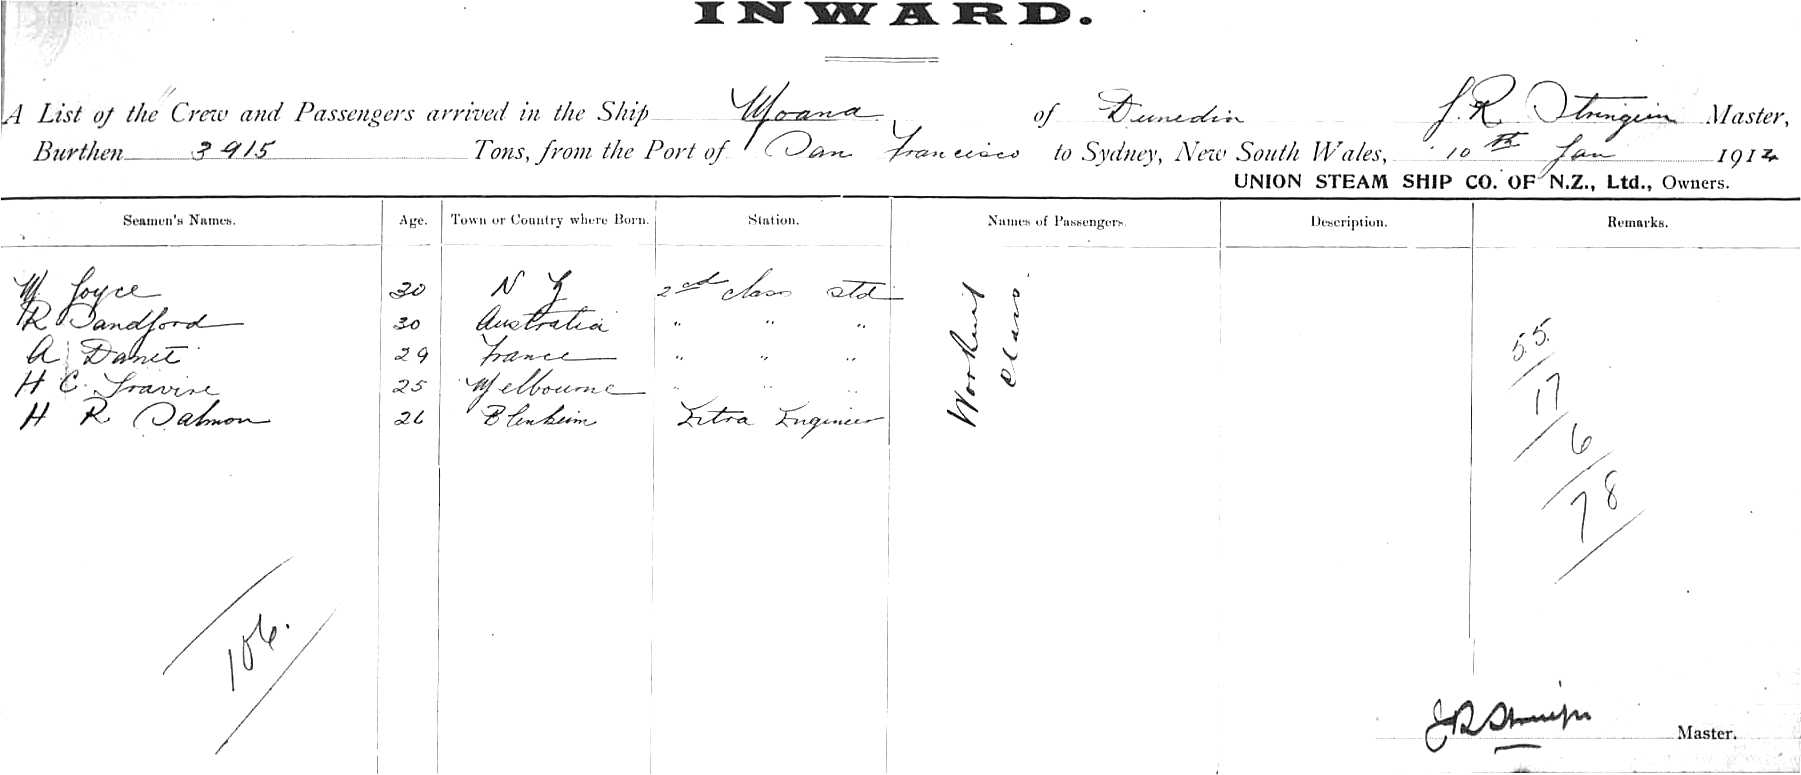 INWARD.
A List of the Crew and Passengers arrived in the Ship Moana of Dunedin J. R. Stringer Master,
Burthen 3915 Tons, from the Port of San Francisco to Sydney, New South Wales, 10th Jan 1914
UNION STEAM SHIP CO. OF N.Z., Ltd., Owners.
Seamen's Names. Age. Town or Country where Born. Station. Names of Passengers. Description. Remarks.
W Joyce 30 N Z 2nd class std
R Sandford 30 Australia " " "
A Danet 29 France " " "
H C 25 Melbourne " " "
H R Salmon 26 Blenheim Extra Engineer
Class
55
17
6
78
106.
Master.